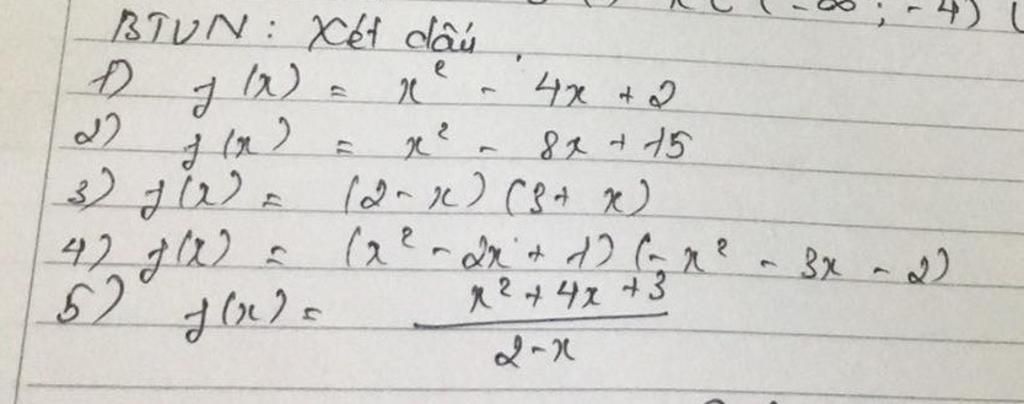 x ∈ (-∞; -4) (
BTVN: Xét dấu
1) f(x) = x² - 4x + 2
2) f(x) = x² - 8x + 15
3) f(x) = (2 - x) (3 + x)
4) f(x) = (x² - 2x + 1) (-x² - 3x - 2)
5) f(x) = \frac{x² + 4x + 3}{2 - x}